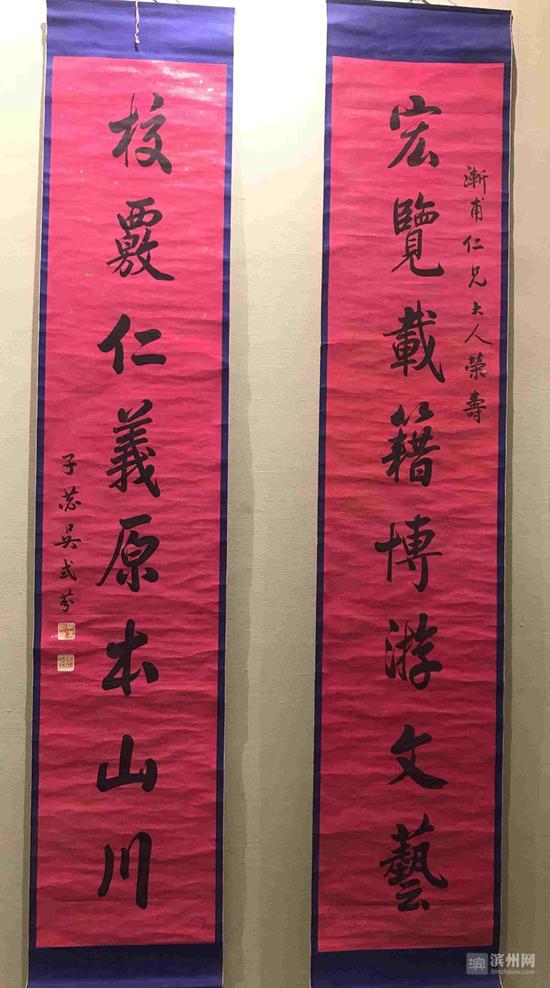 漸甫仁兄大人荣壽
宏覽載籍博游文藝
校覈仁義原本山川
子苾吳式芬
滨州网
binzhouw.com